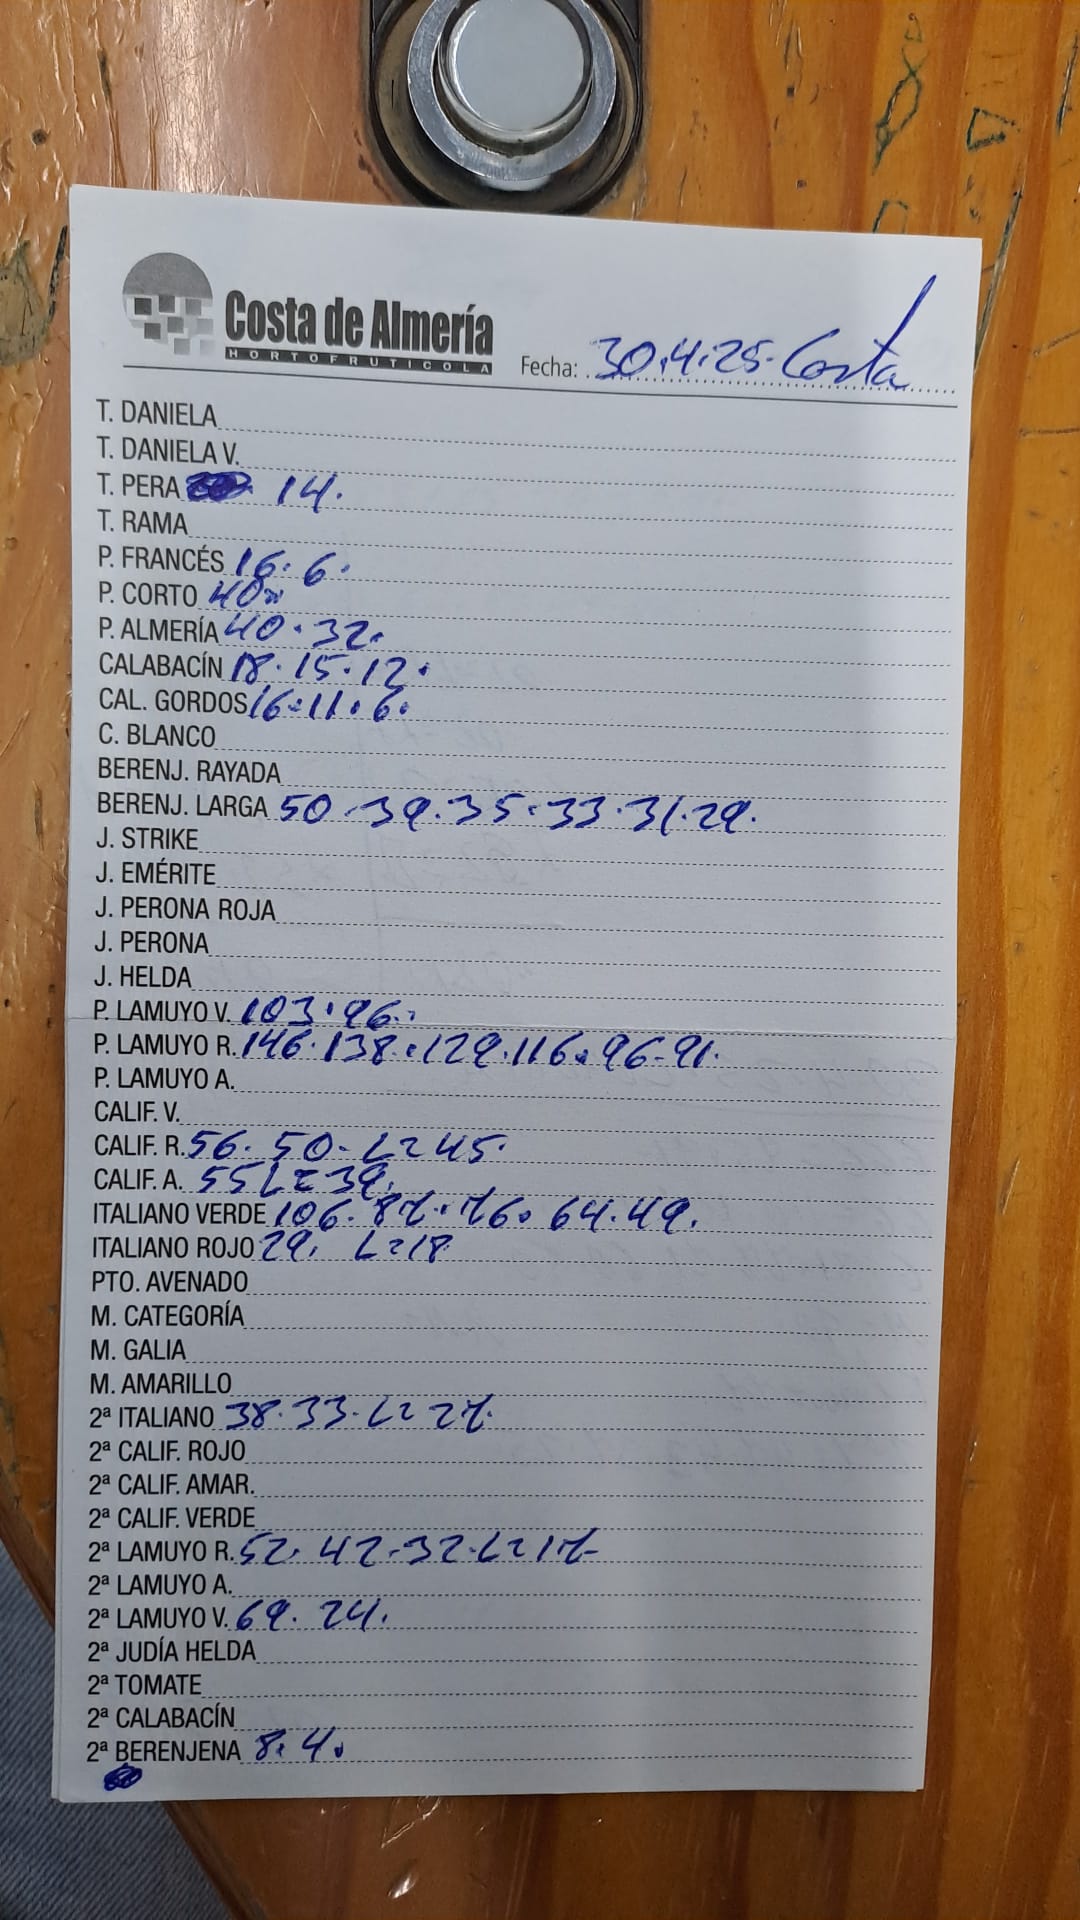 Costa de Almería
HORTOFRUTICOLA
Fecha: 30.4.25. Costa
T. DANIELA
T. DANIELA V.
T. PERA 14.
T. RAMA
P. FRANCÉS 16. 6.
P. CORTO 40.
P. ALMERÍA 40. 32.
CALABACÍN 18. 15. 12.
CAL. GORDOS 16. 11. 6.
C. BLANCO
BERENJ. RAYADA
BERENJ. LARGA 50. 39. 35. 33. 31. 29.
J. STRIKE
J. EMÉRITE
J. PERONA ROJA
J. PERONA
J. HELDA
P. LAMUYO V. 103. 96.
P. LAMUYO R. 146. 138. 129. 116. 96-91.
P. LAMUYO A.
CALIF. V.
CALIF. R. 56. 50- L=45.
CALIF. A. 55 L=39.
ITALIANO VERDE 106. 87. 76. 64. 49.
ITALIANO ROJO 29. L=18
PTO. AVENADO
M. CATEGORÍA
M. GALIA
M. AMARILLO
2ª ITALIANO 38. 33. L=27.
2ª CALIF. ROJO
2ª CALIF. AMAR.
2ª CALIF. VERDE
2ª LAMUYO R. 52. 42. 32. L=17-
2ª LAMUYO A.
2ª LAMUYO V. 69. 24.
2ª JUDÍA HELDA
2ª TOMATE
2ª CALABACÍN
2ª BERENJENA 8. 4.